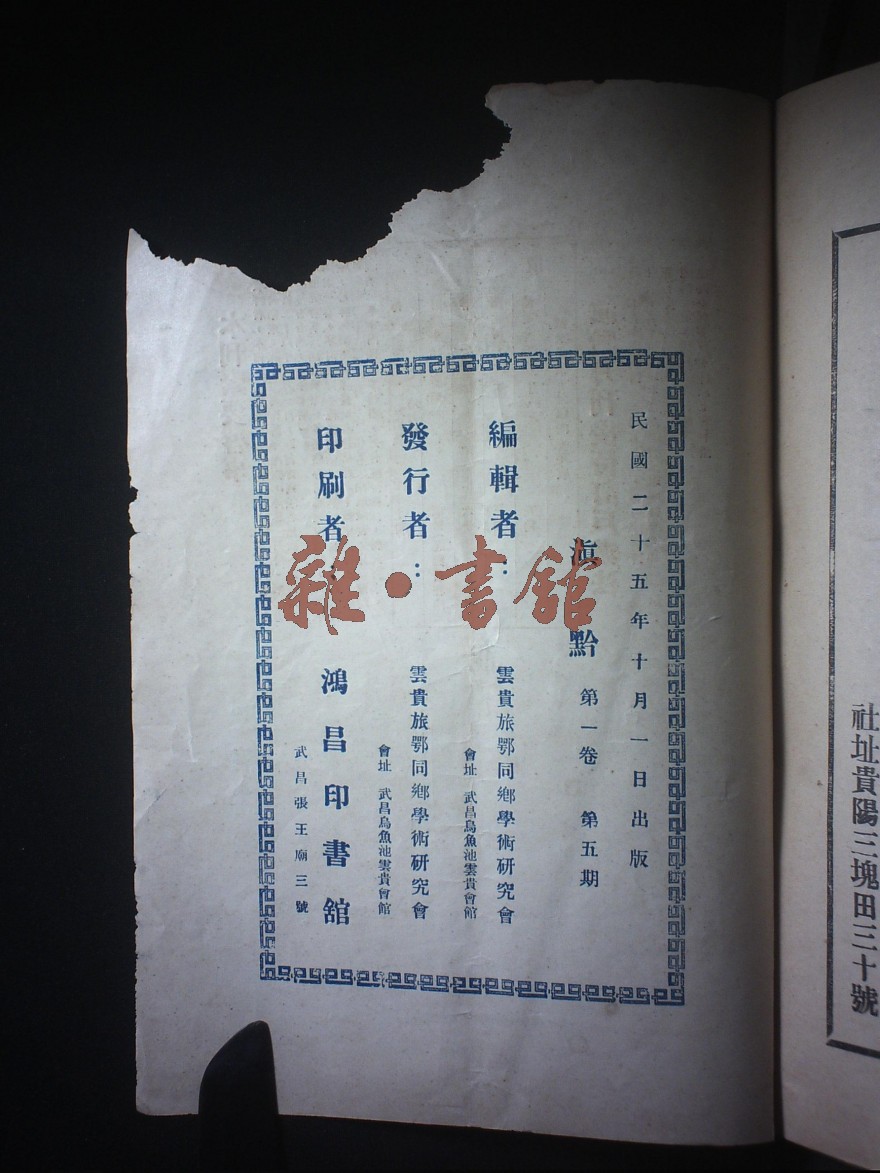 民國二十五年十月一日出版
滇黔 第一卷 第五期
編輯者： 雲貴旅鄂同鄉學術研究會
會址 武昌烏魚池雲貴會館
發行者： 雲貴旅鄂同鄉學術研究會
會址 武昌烏魚池雲貴會館
印刷者： 鴻昌印書舘
武昌張王廟三號
雜·書舘
社址貴陽三塊田三十號